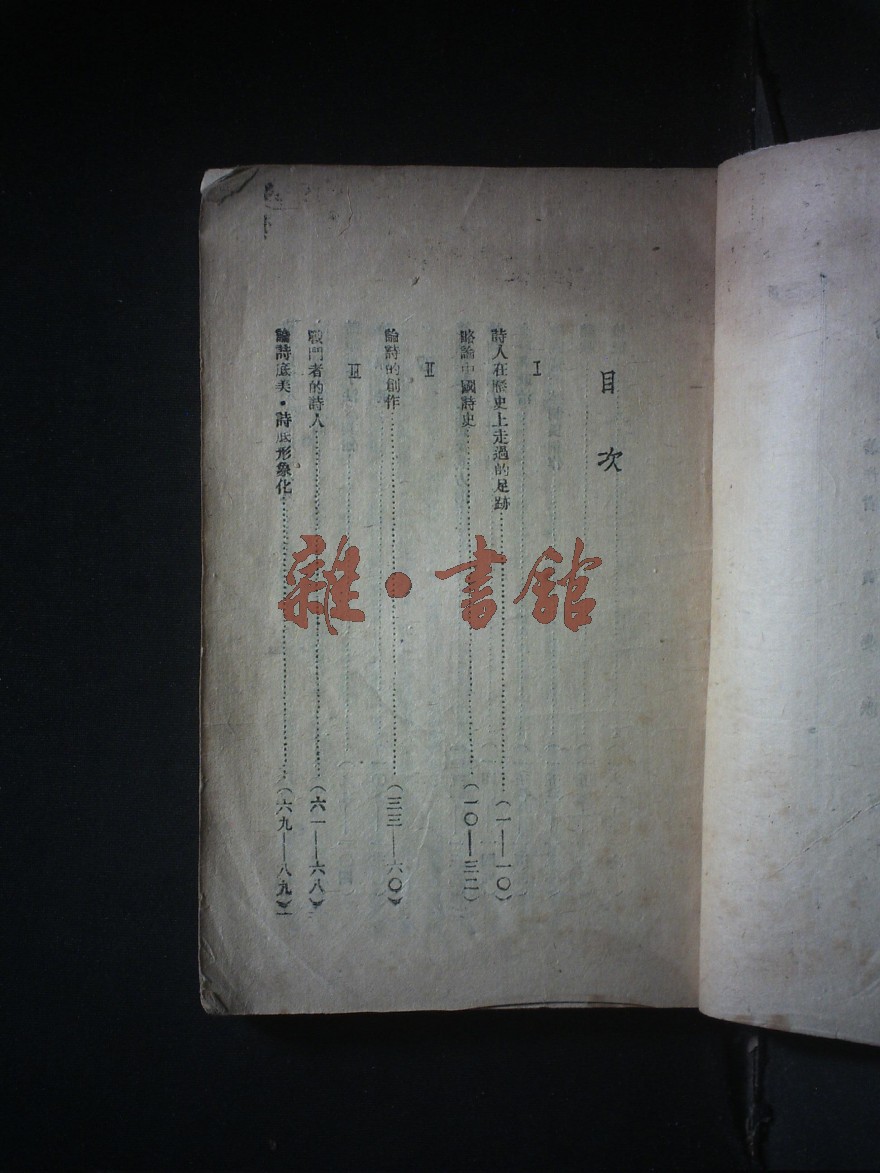 目次
I
詩人在歷史上走過的足跡……(一—一〇)
略論中國詩史……(一〇—三二)
II
論詩的創作……(三三—六〇)
III
戰鬥者的詩人……(六一—六八)
論詩底美·詩底形象化……(六九—八九)
雜·書舘